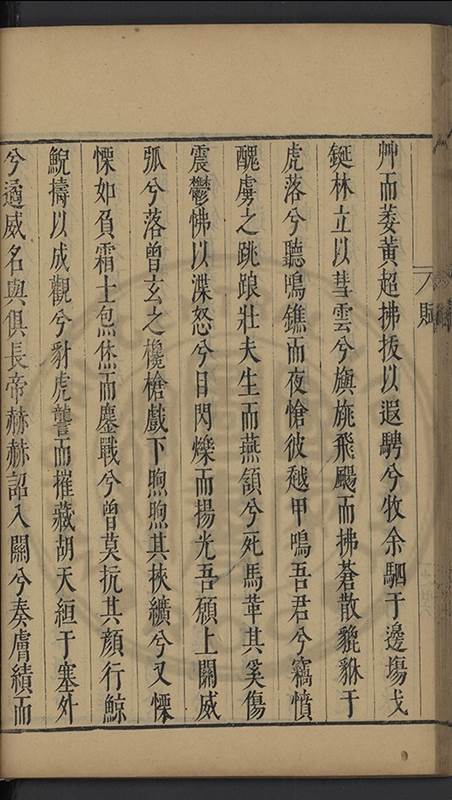 艸而萎黃超拂抜以遐騁兮牧余駟于邊塲戈
鋋林立以彗雲兮旟旐飛颺而拂蒼散貔貅于
虎落兮聽鳴鐎而夜愴彼䟠甲鳴吾君兮竊憤
醜虜之跳踉壯夫生而燕頷兮死馬革其奚傷
震鬱怫以渫怒兮目閃爍而揚光吾碩上關威
弧兮落曾玄之欃槍戲下煦煦其挾纊兮又慄
慄如負霜上炰烋而鏖戰兮曾莫抗其顏行鯨
鯢擣以成觀兮豺虎讋而摧藏胡天絙于塞外
兮遹威名與俱長帝赫赫詔入關兮奏膚績而
賦